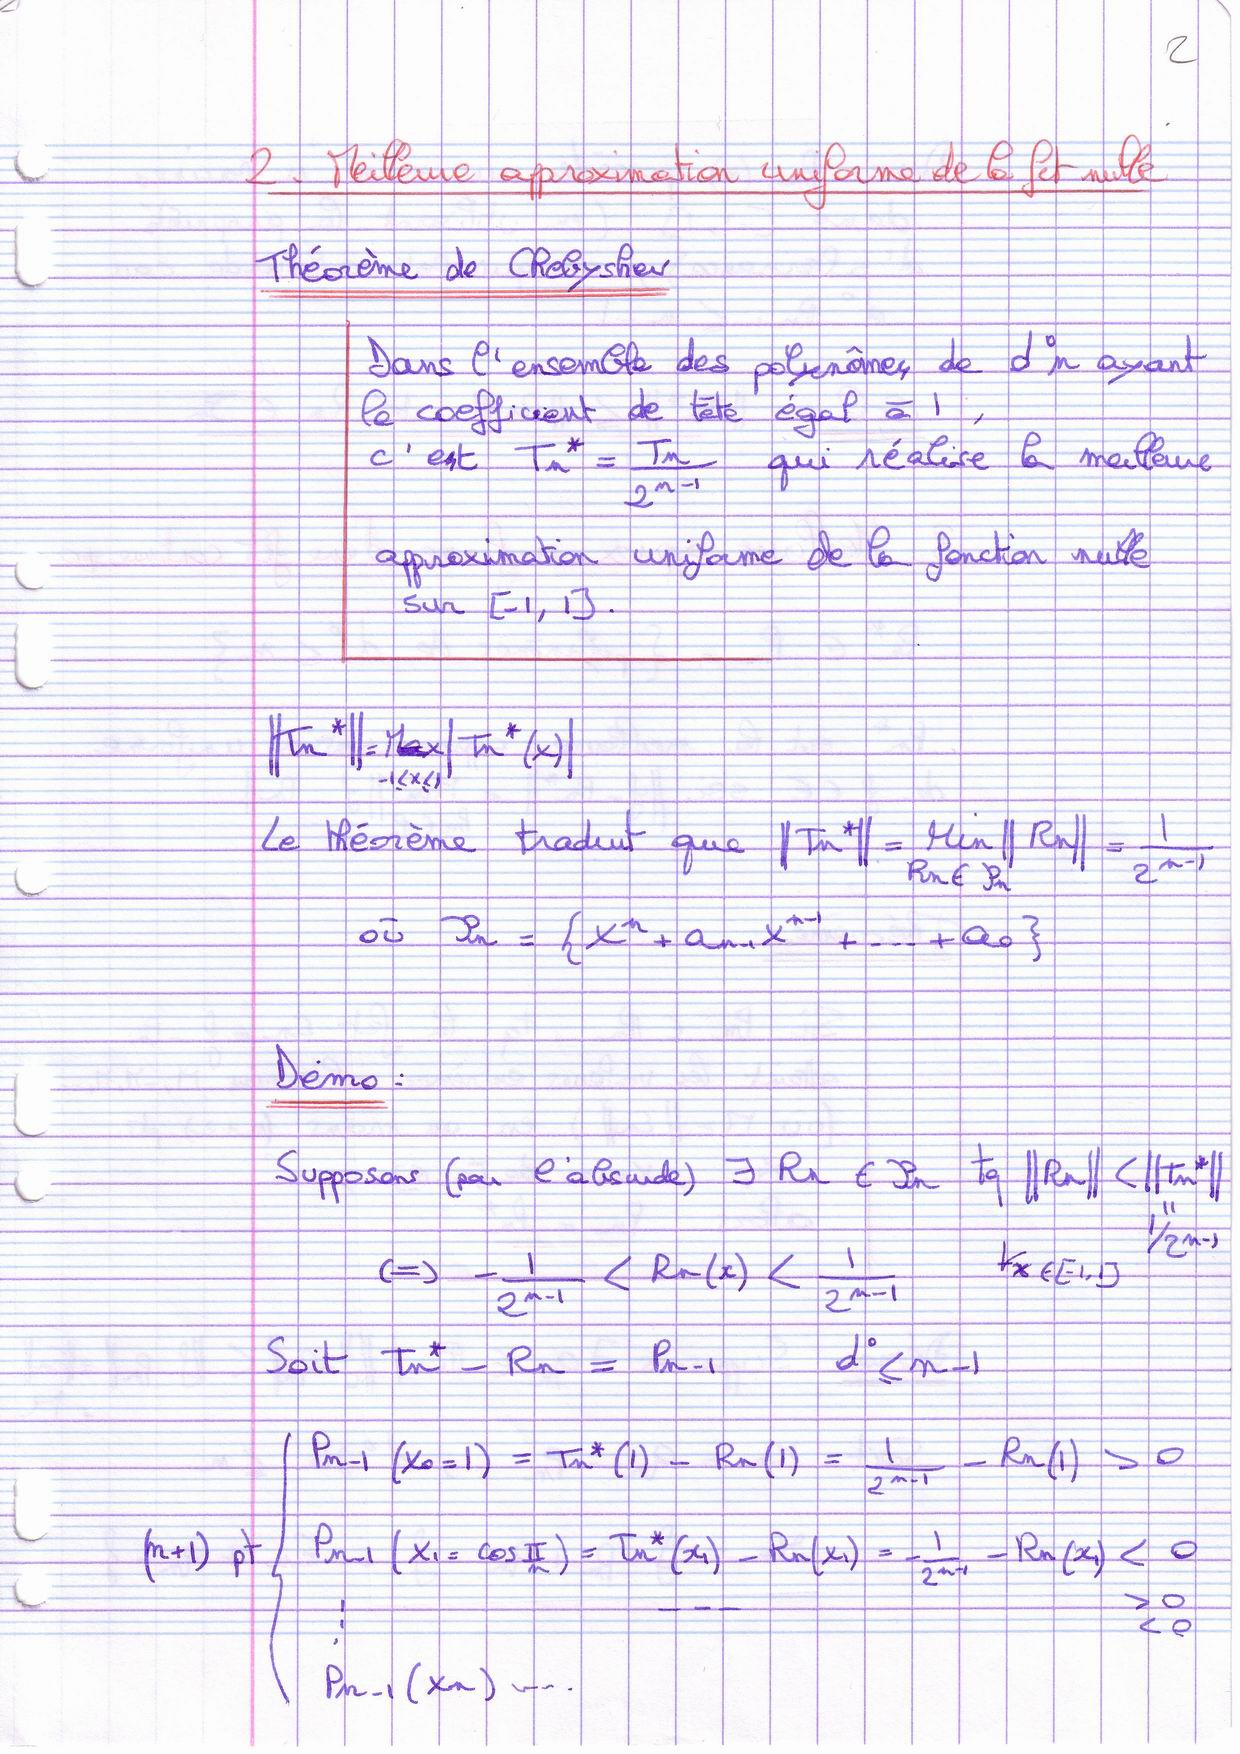 2
2. Meilleure approximation uniforme de la fct nulle
Théorème de Chebyshev
Dans l'ensemble des polynômes de d°n ayant
le coefficient de tête égal à 1,
c'est Tn* = Tn / 2^(n-1) qui réalise la meilleure
approximation uniforme de la fonction nulle
sur [-1, 1].
||Tn*|| = Max_{-1≤x≤1} |Tn*(x)|
Le théorème traduit que ||Tn*|| = Min_{Rn ∈ Pn} ||Rn|| = 1 / 2^(n-1)
où Pn = {X^n + a_{n-1} X^{n-1} + ... + a_0}
Démo :
Supposons (par l'absurde) ∃ Rn ∈ Pn tq ||Rn|| < ||Tn*||
" 1/2^{n-1}
(=) - 1 / 2^{n-1} < Rn(x) < 1 / 2^{n-1} ∀x ∈ [-1,1]
Soit Tn* - Rn = Pn-1 d° ≤ n-1
Pn-1 (x0 = 1) = Tn*(1) - Rn(1) = 1 / 2^{n-1} - Rn(1) > 0
(n+1) pt Pn-1 (x1 = cos π/n) = Tn*(x1) - Rn(x1) = - 1 / 2^{n-1} - Rn(x1) < 0
⋮ --- > 0
< 0
Pn-1 (xn) ----